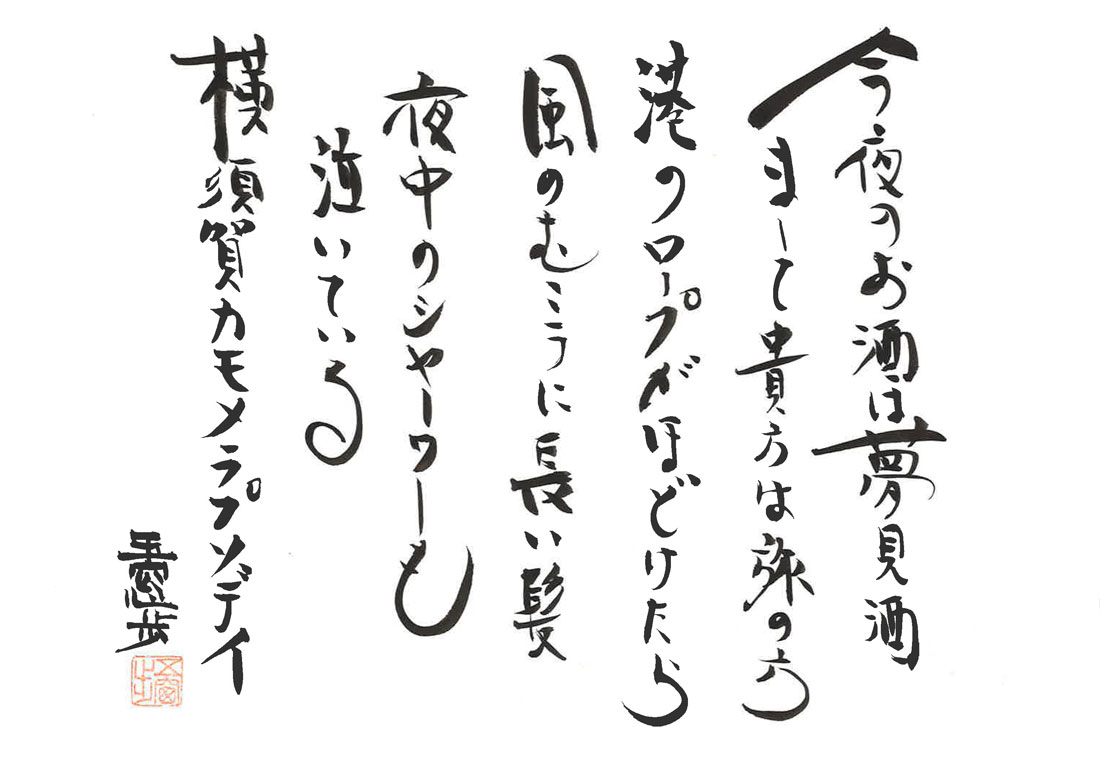 今夜のお酒は夢見酒
まして貴方は旅の方
港のロープがほどけたら
風のむこうに長い髪
夜中のシャワーも
泣いている
横須賀カモメラプソデイ